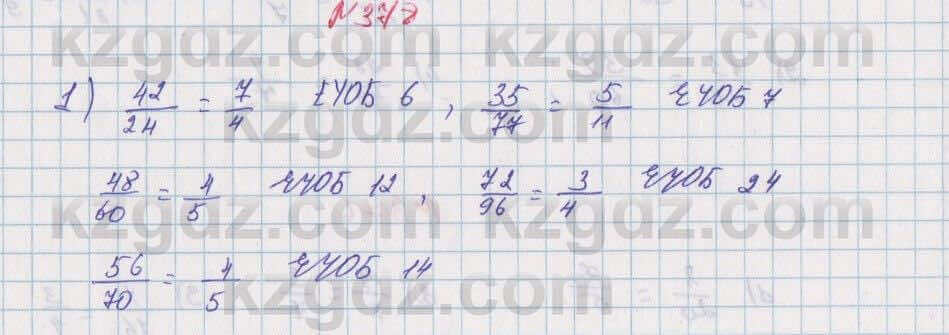 №377
1) 42/24 = 7/4 ЕҮОБ 6, 35/77 = 5/11 ЕҮОБ 7
48/60 = 4/5 ЕҮОБ 12, 72/96 = 3/4 ЕҮОБ 24
56/70 = 4/5 ЕҮОБ 14
kzgdz.com kzgdz.com
kzgdz.com kzgdz.com
kzgdz.com kzgdz.com